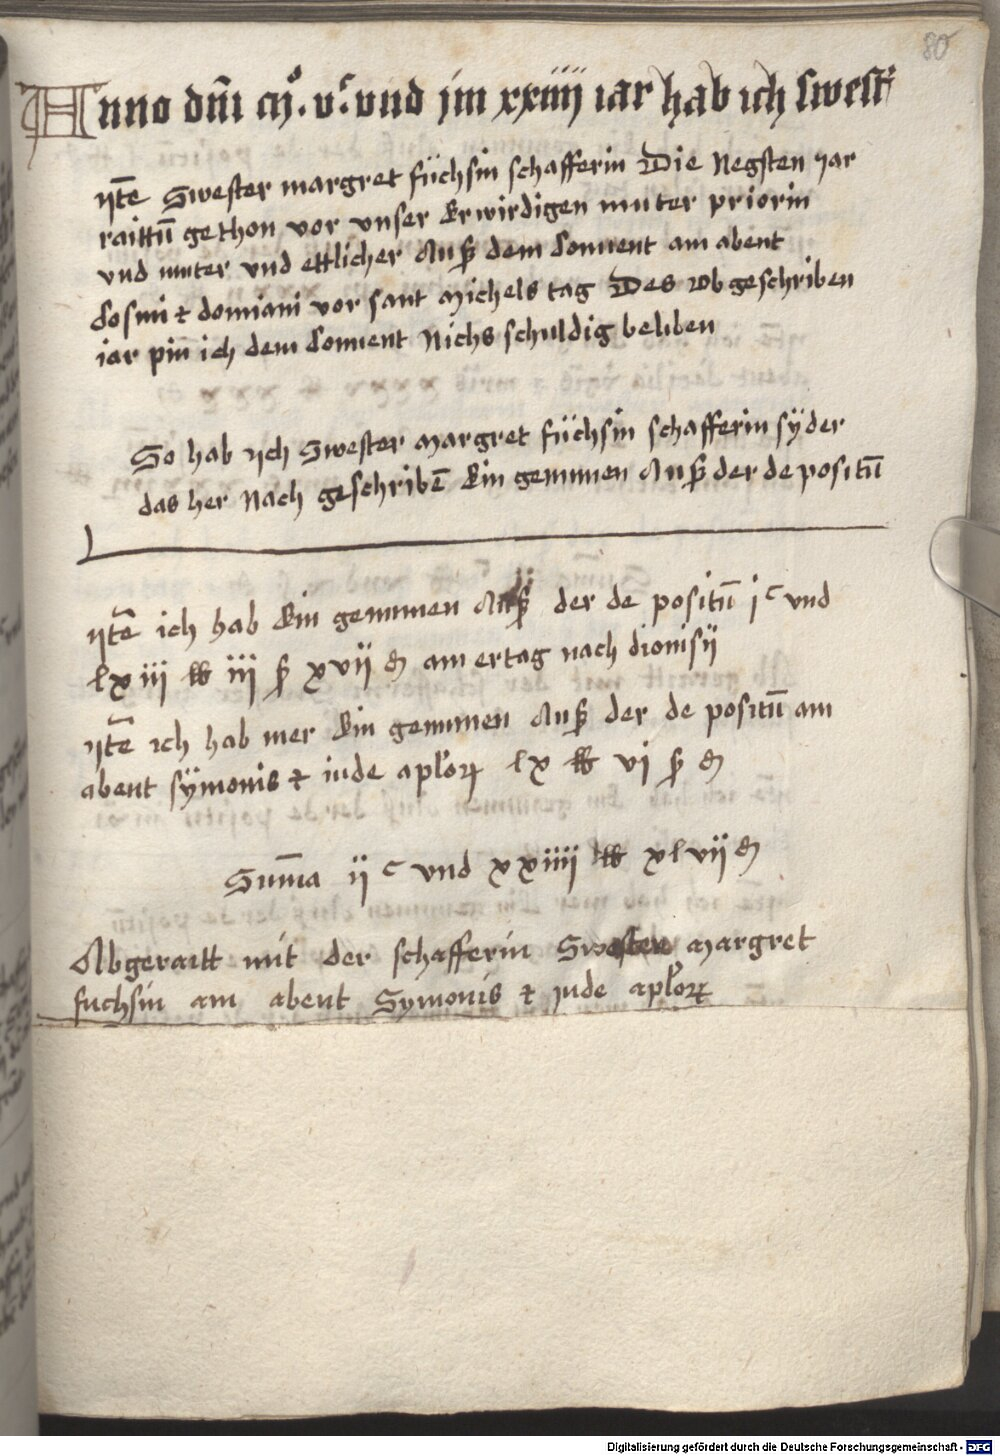 80
Anno dñi mº. vᶜ. vnd jm xxiiij iar hab ich swest
ytē Swester margret füchsin schafferin Die Negsten yar
raittūg gethon vor vnser Erwirdigen muter priorin
vnd muter vnd ettlicher Auß dem Conuent am abent
Cosmi et domiani vor sant Michels tag Des Obgeschriben
iar pin ich dem Conuent Nichs schuldig beliben
So hab ych Swester Margret füchsin schafferin syder
das her Nach geschribē Ein genumen Auß der de positū
ytē ich hab Ein genumen Auß der de positū jᶜ vnd
lxiii ℔ iii ß xvii ₰ am ertag nach dionisy
ytē ich hab mer Ein genumen Auß der de positū am
abent symonis et iude aplorꝝ lx ℔ vi ß ₰
Sum̄a ijᶜ vnd xxiiij ℔ xlvij ₰
Abgeraitt mit der schafferin Swester Margret
fuchsin am abent Symonis et jude aplorꝝ
Digitalisierung gefördert durch die Deutsche Forschungsgemeinschaft - DFG